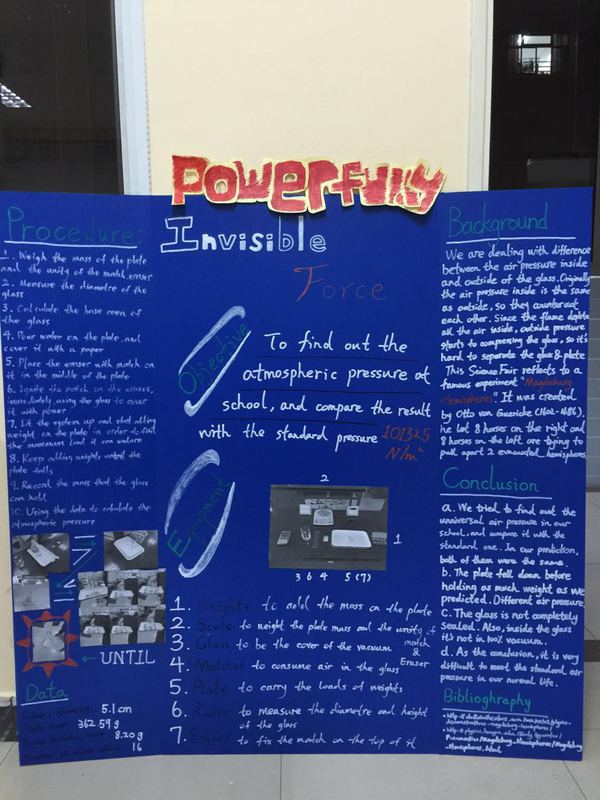 POWERFULLY
Invisible
Force
Procedure:
1. Weigh the mass of the plate
and the unity of the match, eraser
2. Measure the diametre of the
glass
3. Calculate the base area of
the glass
4. Pour water on the plate, and
cover it with a paper
5. Place the eraser with match on
it in the middle of the plate
6. Ignite the match on the eraser,
immediately using the glass to cover
it with power
7. Lift the system up and start adding
weight on the plate in order to find
the maximum load it can endure
8. Keep adding weights until the
plate falls
9. Record the mass that the glass
can hold
10. Using the data to calculate the
atmospheric pressure
UNTIL
Data
Glass's diametre 5.1cm
Plate mass 362.59g
8.20g
16
Objective
To find out the
atmospheric pressure at
school, and compare the result
with the standard pressure 101325
N/m²
Equipment
2
1
3 6 4 5 (7)
1. Weights to add the mass on the plate
2. Scale to weight the plate mass and the unity of
match
&
Eraser
3. Glass to be the cover of the vacuum
4. Matches to consume air in the glass
5. Plate to carry the loads of weights
6. Ruler to measure the diametre and height
of the glass
7. Eraser to fix the match on the top of it
Background
We are dealing with difference
between the air pressure inside
and outside of the glass. Originally
the air pressure inside is the same
as outside, so they counteract
each other. Since the flame deplete
all the air inside, outside pressure
starts to compressing the glass, so it's
hard to separate the glass & plate
This Science Fair reflects to a
famous experiment "Magdeburg
Hemispheres". It was created
by Otto von Guericke (1602-1686).
he let 8 horses on the right and
8 horses on the left are trying to
pull apart 2 evacuated hemispheres
Conclusion
a. We tried to find out the
universal air pressure in our
school, and compare it with the
standard one. In our prediction,
both of them were the same.
b. The plate fell down before
holding as much weight as we
predicted. Different air pressure.
c. The glass is not completely
Sealed. Also, inside the glass
it's not in 100% vacuum.
d. As the conclusion, it is very
difficult to meet the standard air
pressure in our normal life.
Biblioghraphy